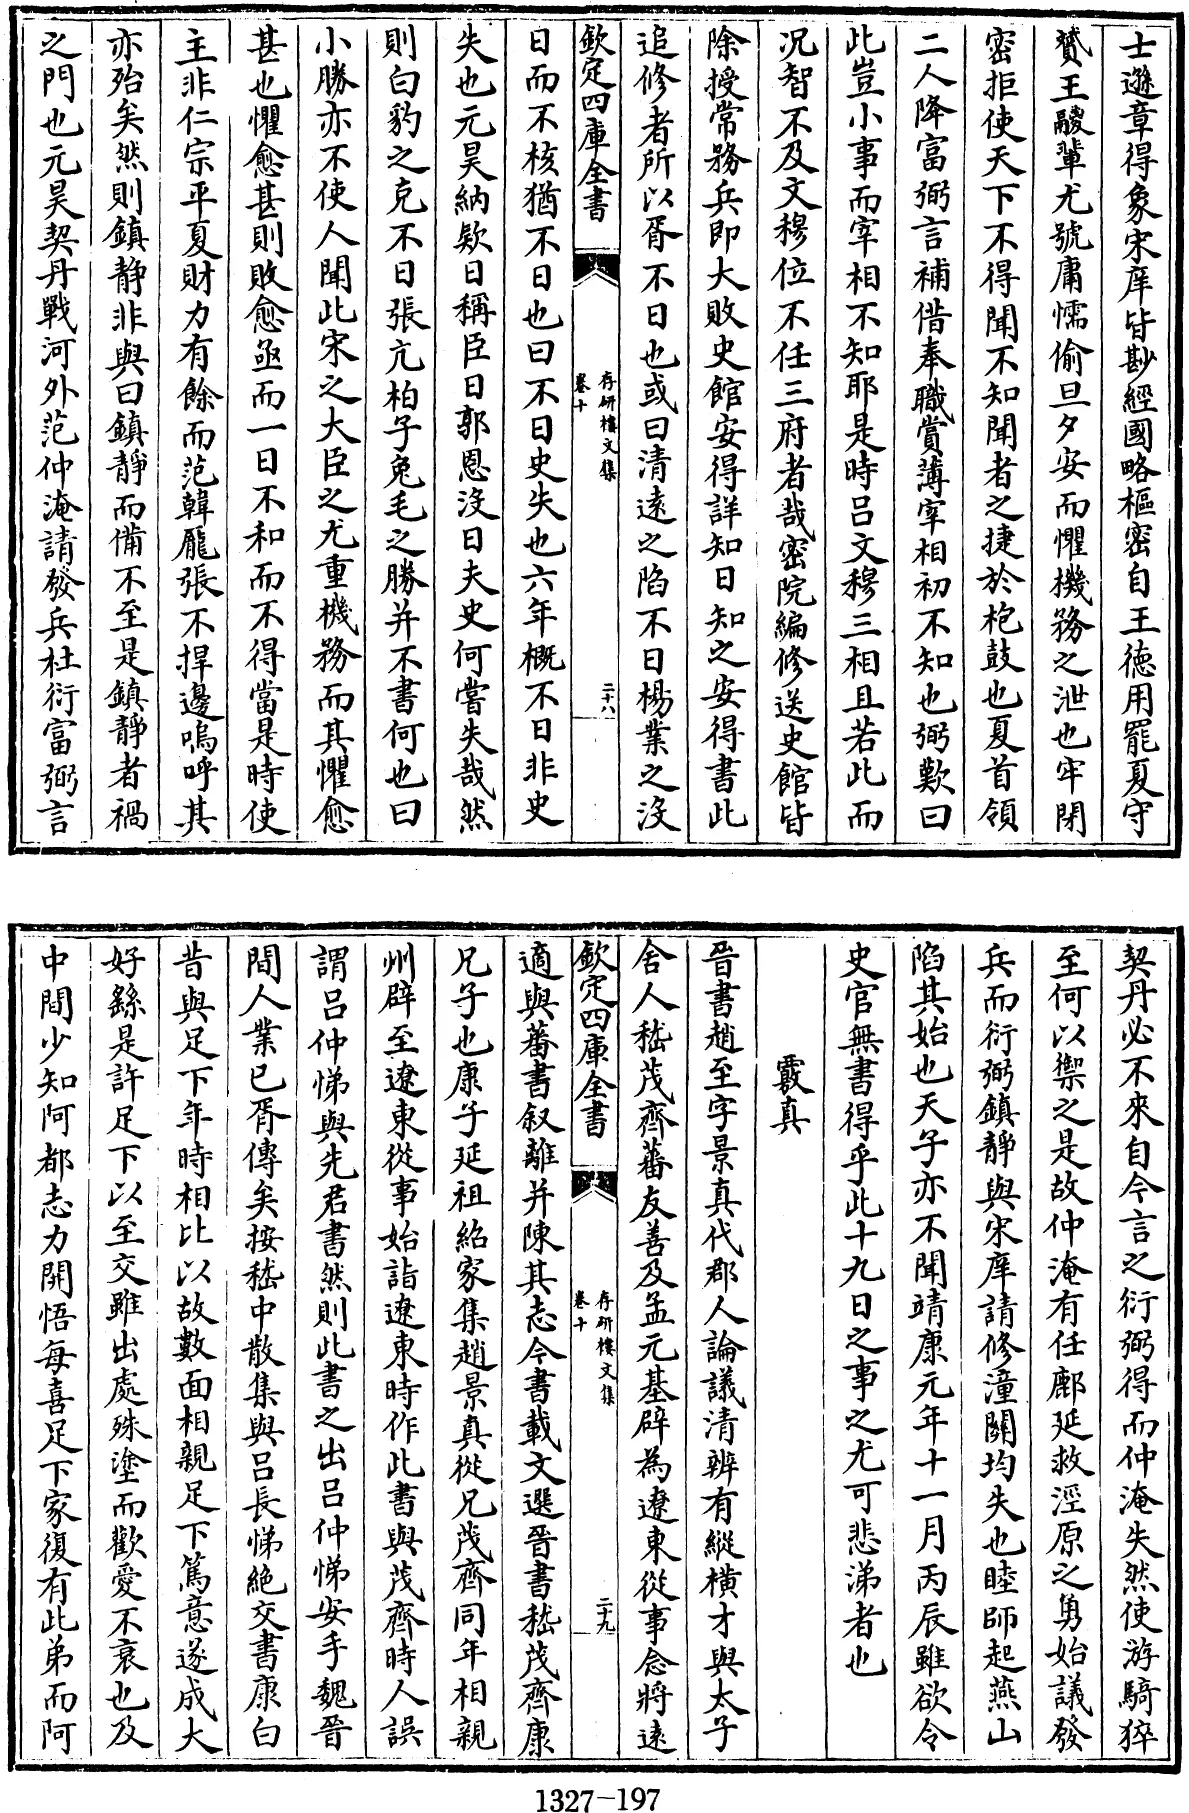 士遜章得象宋庠皆尠經國略樞密自王德用罷夏守
贇王鬷輩尤號庸懦偷旦夕安而懼機務之泄也牢閉
密拒使天下不得聞不知聞者之捷於枹鼓也夏首領
二人降富弼言補借奉職賞薄宰相初不知也弼歎曰
此豈小事而宰相不知耶是時呂文穆三相且若此而
況智不及文穆位不任三府者哉密院編修送史館皆
除授常務兵即大敗史館安得詳知日知之安得書此
追修者所以胥不日也或曰清遠之陷不日楊業之沒
欽定四庫全書
存研樓文集
卷十
二十八
日而不核猶不日也曰不日史失也六年概不日非史
失也元昊納欵日稱臣日郭恩沒日夫史何嘗失哉然
則白豹之克不日張亢柏子兔毛之勝并不書何也曰
小勝亦不使人聞此宋之大臣之尤重機務而其懼愈
甚也懼愈甚則敗愈亟而一日不和而不得當是時使
主非仁宗平夏財力有餘而范韓龐張不捍邊嗚呼其
亦殆矣然則鎮靜非與曰鎮靜而備不至是鎮靜者禍
之門也元昊契丹戰河外范仲淹請發兵杜衍富弼言
契丹必不來自今言之衍弼得而仲淹失然使游騎猝
至何以禦之是故仲淹有任鄜延救涇原之勇始議發
兵而衍弼鎮靜與宋庠請修潼關均失也睦師起燕山
陷其始也天子亦不聞靖康元年十一月丙辰雖欲令
史官無書得乎此十九日之事之尤可悲涕者也
覈真
晉書趙至字景真代郡人論議清辨有縱橫才與太子
舍人嵇茂齊蕃友善及孟元基辟為遼東從事念將遠
欽定四庫全書
存研樓文集
卷十
二十九
適與蕃書叙離并陳其志今書載文選晉書嵇茂齊康
兄子也康子延祖紹家集趙景真從兄茂齊同年相親
州辟至遼東從事始詣遼東時作此書與茂齊時人誤
謂呂仲悌與先君書然則此書之出呂仲悌安手魏晉
間人業已胥傳矣按嵇中散集與呂長悌絶交書康白
昔與足下年時相比以故數面相親足下篤意遂成大
好繇是許足下以至交雖出處殊塗而歡愛不衰也及
中間少知阿都志力開悟每喜足下家復有此弟而阿
1327-197